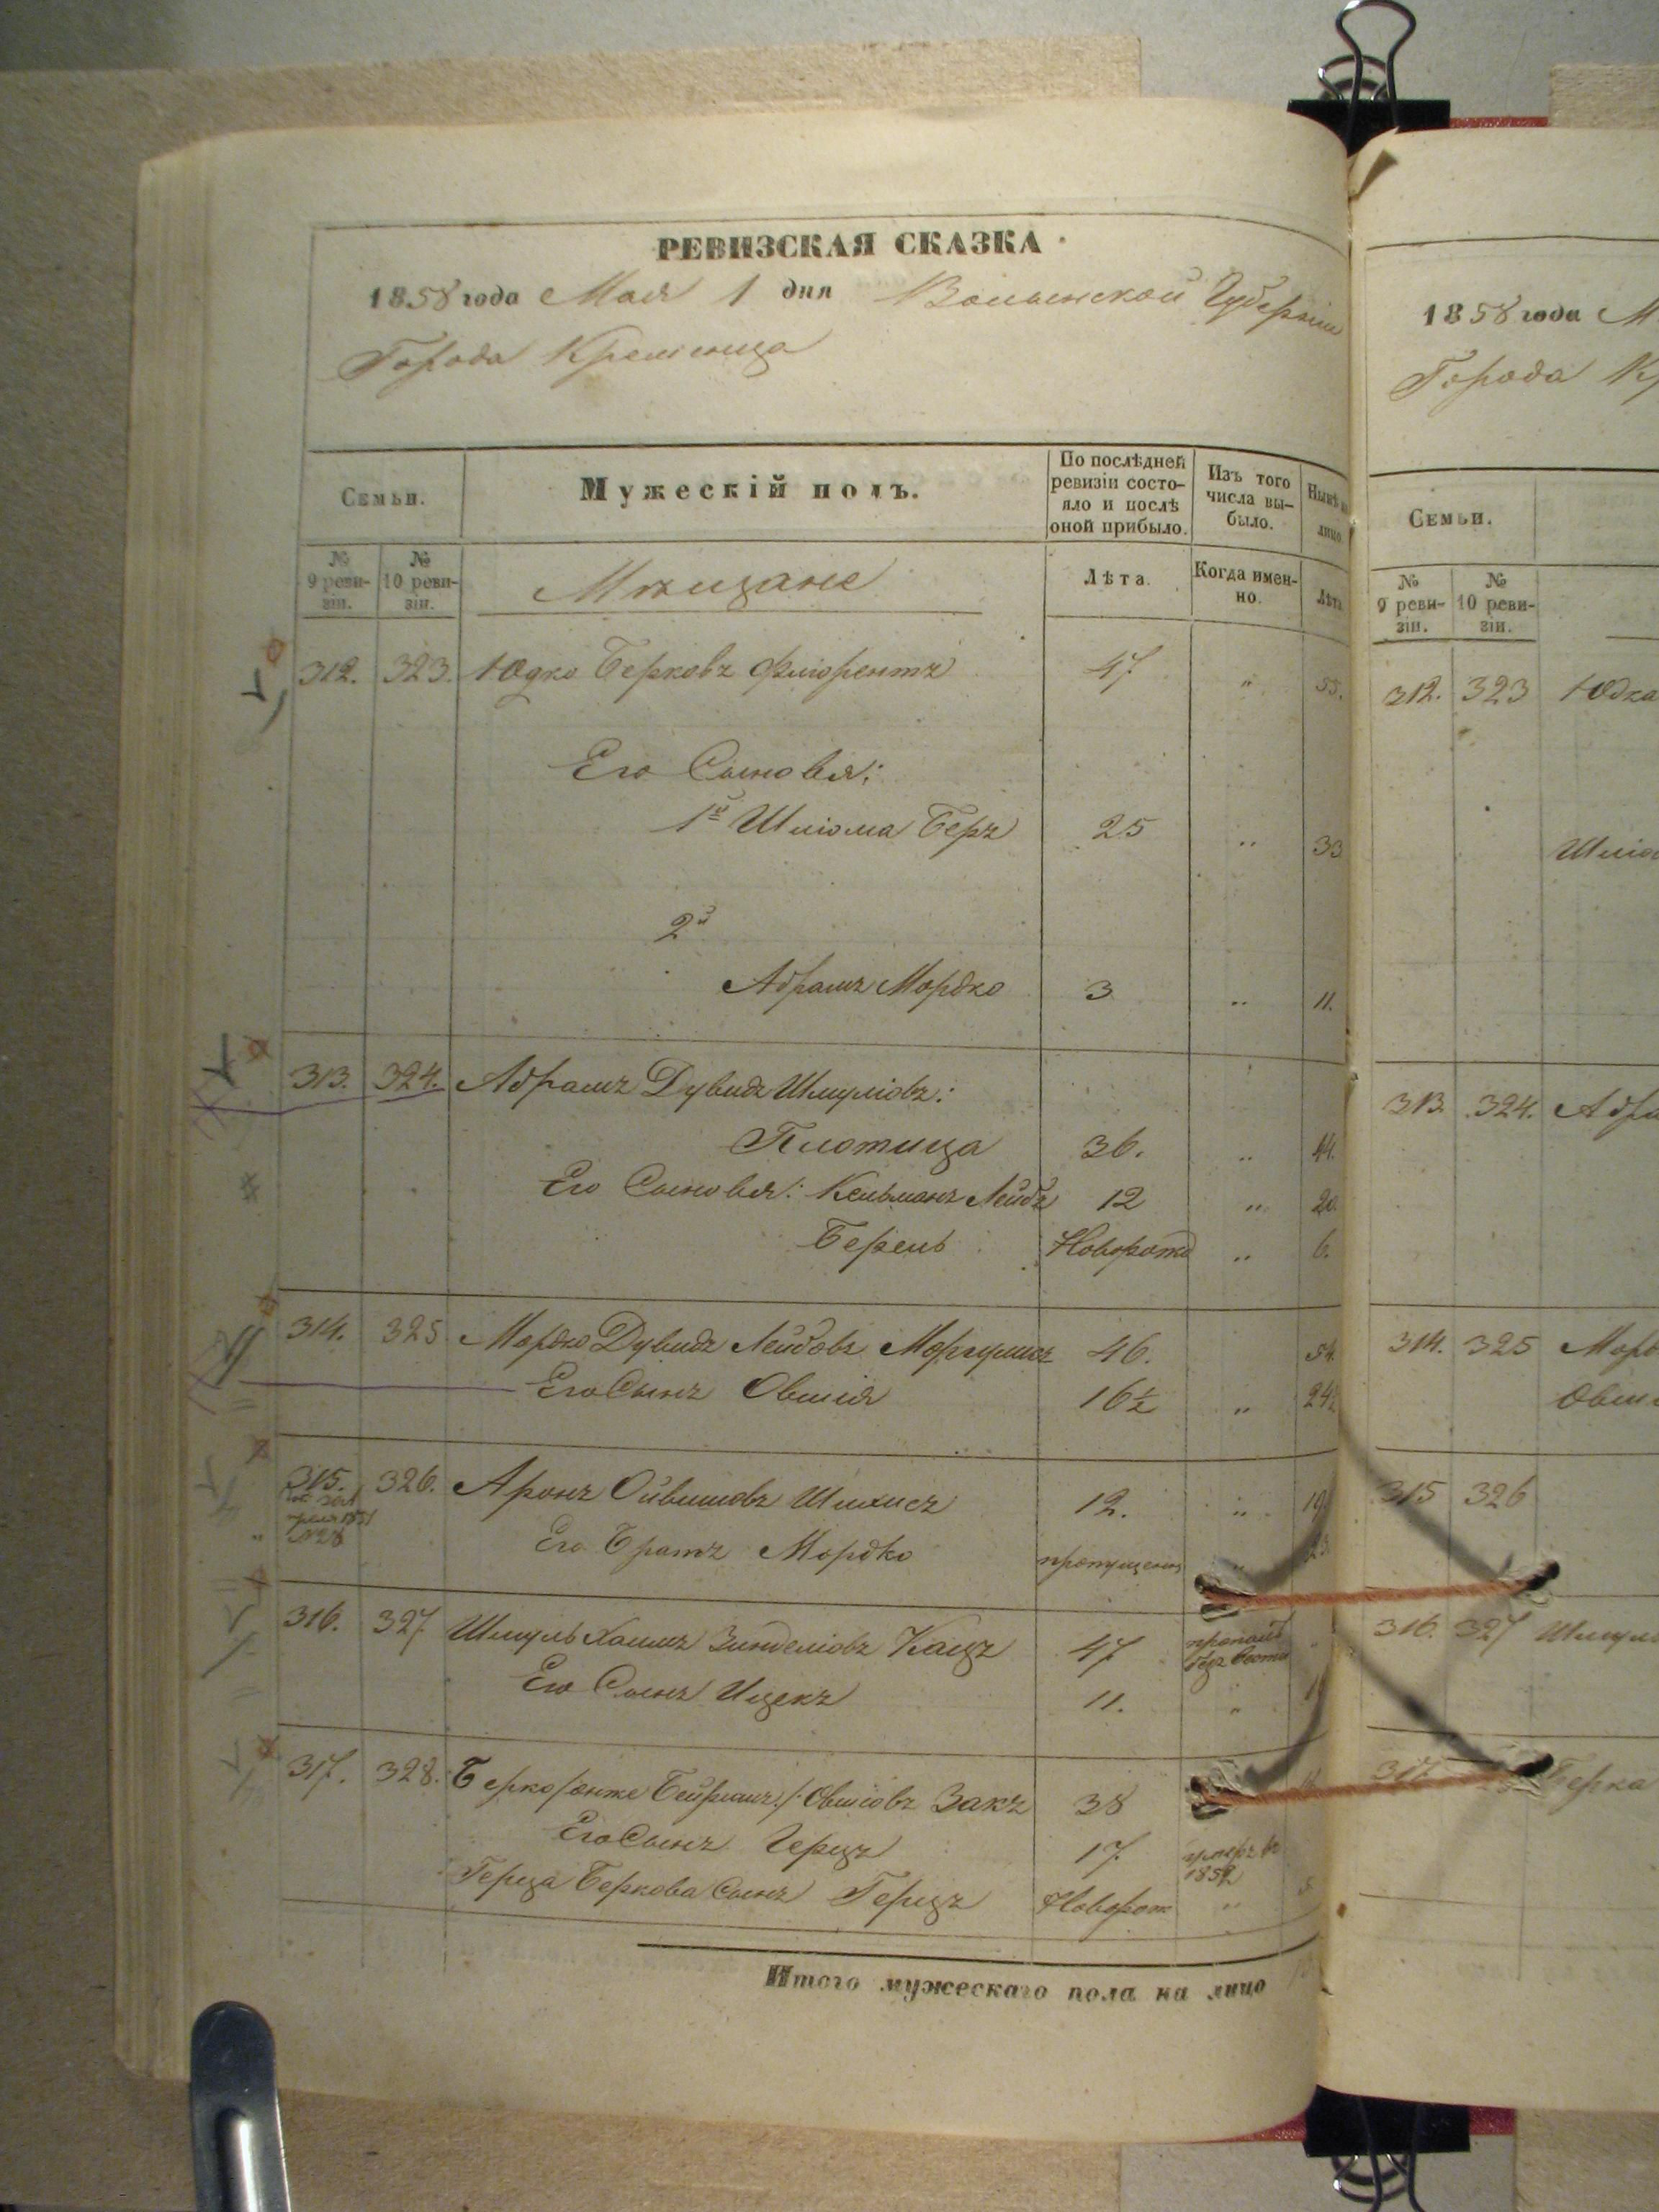 РЕВИЗСКАЯ СКАЗКА
1858 года Мая 1 дня Волынской Губернiи
Города Кременца
Семьи.
Мужескiй полъ.
По послѣдней ревизiи состо-
яло и послѣ
оной прибыло.
Изъ того
числа вы-
было.
Нынѣ на
лицо
№
9 реви-
зiи.
№
10 реви-
зiи.
Мѣщане
Лѣта.
Когда имен-
но.
Лѣта
312. 323. Юдко Берковъ Флiорентъ 47 " 55.
Его Сыновья:
1й Шлiома Беръ 25 " 33
2й
Абрамъ Мордко 3 " 11.
313. 324. Абрамъ Дувидъ Шмулiовъ:
Плотица 36. " 44.
Его Сыновья: Кельманъ Лейбъ 12 " 20.
Берель Новорожд " 6.
314. 325 Мордко Дувидъ Лейбовъ Моргулисъ 46. 54.
Его Сынъ Овшiя 16½ " 24½
315. 326. Аронъ Ойвшiовъ 12. "
Его Братъ Мордко пропущенъ "
316. 327 Шмуль Хаимъ Зинделiовъ Кацъ 47 пропалъ
безъ вести
Его Сынъ Ицекъ 11. "
317. 328. Берко /онже Бейрышъ/ Овшiовъ Закъ 38
Его Сынъ Герцъ 17. умеръ въ
1852
Герца Беркова Сынъ Герцъ Новорож "
Итого мужескаго пола на лицо
1858 года М
Города Кр
Семьи.
№
9 реви-
зiи.
№
10 реви-
зiи.
312. 323 Юдка
Шлiо
313. 324. Абра
314. 325 Морд
Овши
315 326
316. 327 Шмуль
317 Берка